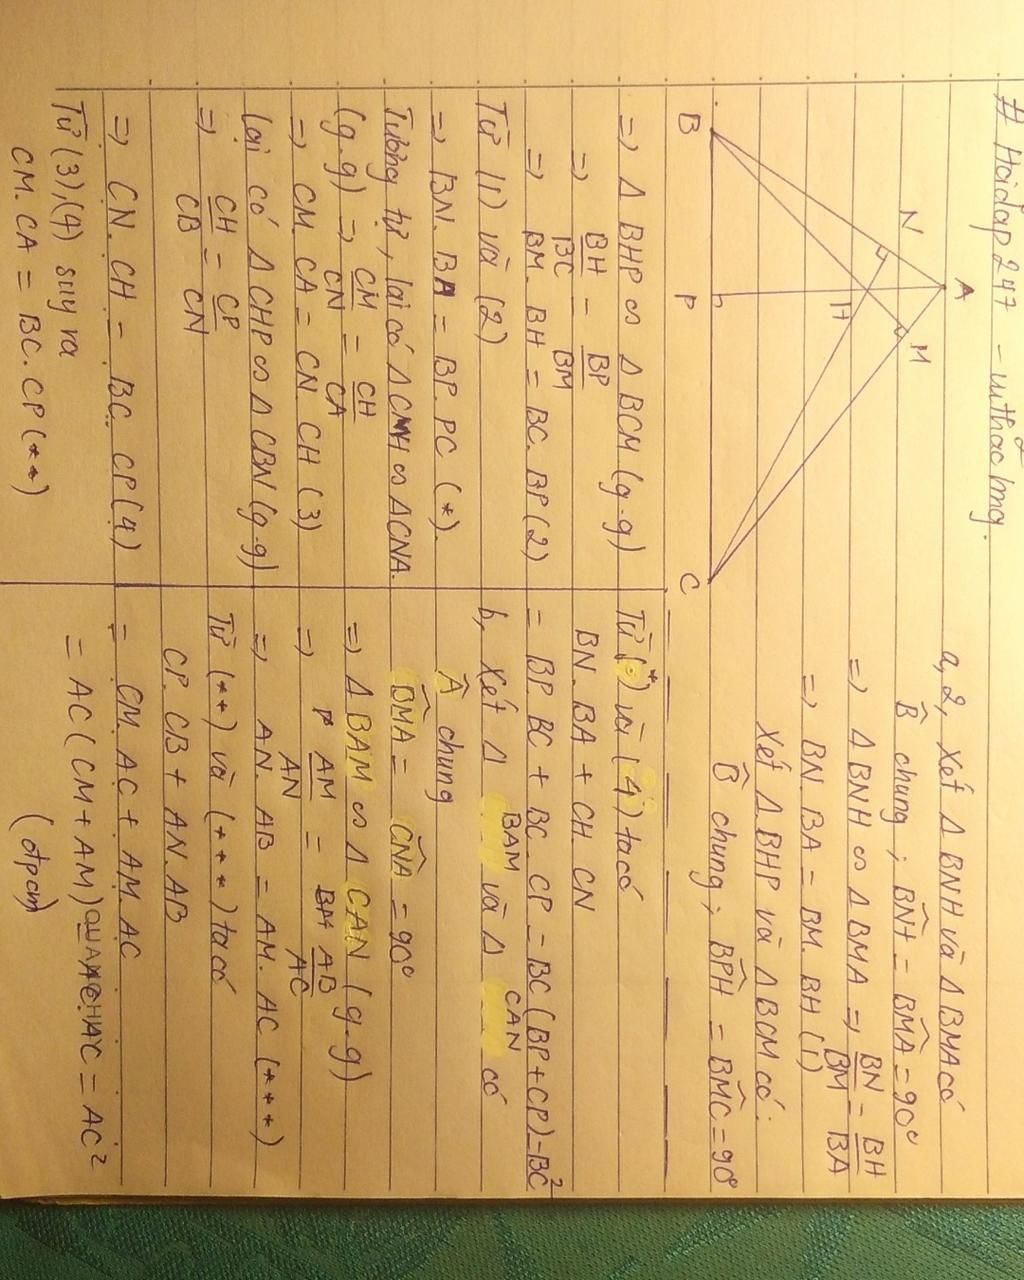 # Hoidap 247 - uuthac²bmg.
A
N
M
H
B
P
C
a, 2, Xét Δ BNH và Δ BMA có
B̂ chung ; BN̂H = BM̂A = 90°
=> Δ BNH ∽ Δ BMA => BN/BM = BH/BA
=> BN. BA = BM. BH (1)
Xét Δ BHP và Δ BCM có :
B̂ chung ; BP̂H = BM̂C = 90°
=> Δ BHP ∽ Δ BCM (g.g)
=> BH/BC = BP/BM
=> BM. BH = BC. BP (2)
Từ (1) và (2)
=> BN. BA = BP. PC (*).
Tương tự, lại có Δ CMH ∽ ΔCNA.
(g.g) => CM/CN = CH/CA
=> CM. CA = CN. CH (3)
Lại có Δ CHP ∽ Δ CBN (g.g)
=> CH/CB = CP/CN
=> CN. CH = BC. CP (4)
Từ (3), (4) suy ra
CM. CA = BC. CP (**)
Từ (*) và (4) ta có
BN. BA + CH. CN
= BP. BC + BC. CP = BC (BP + CP) = BC²
b, Xét Δ BAM và Δ CAN có
Â chung
BM̂A = CN̂A = 90°
=> Δ BAM ∽ Δ CAN (g.g)
=> AM/AN = AB/AC
=> AN. AB = AM. AC (***)
Từ (**) và (***) ta có
CP. CB + AN. AB
= CM. AC + AM. AC
= AC ( CM + AM) = AC. AC = AC²
(đpcm)